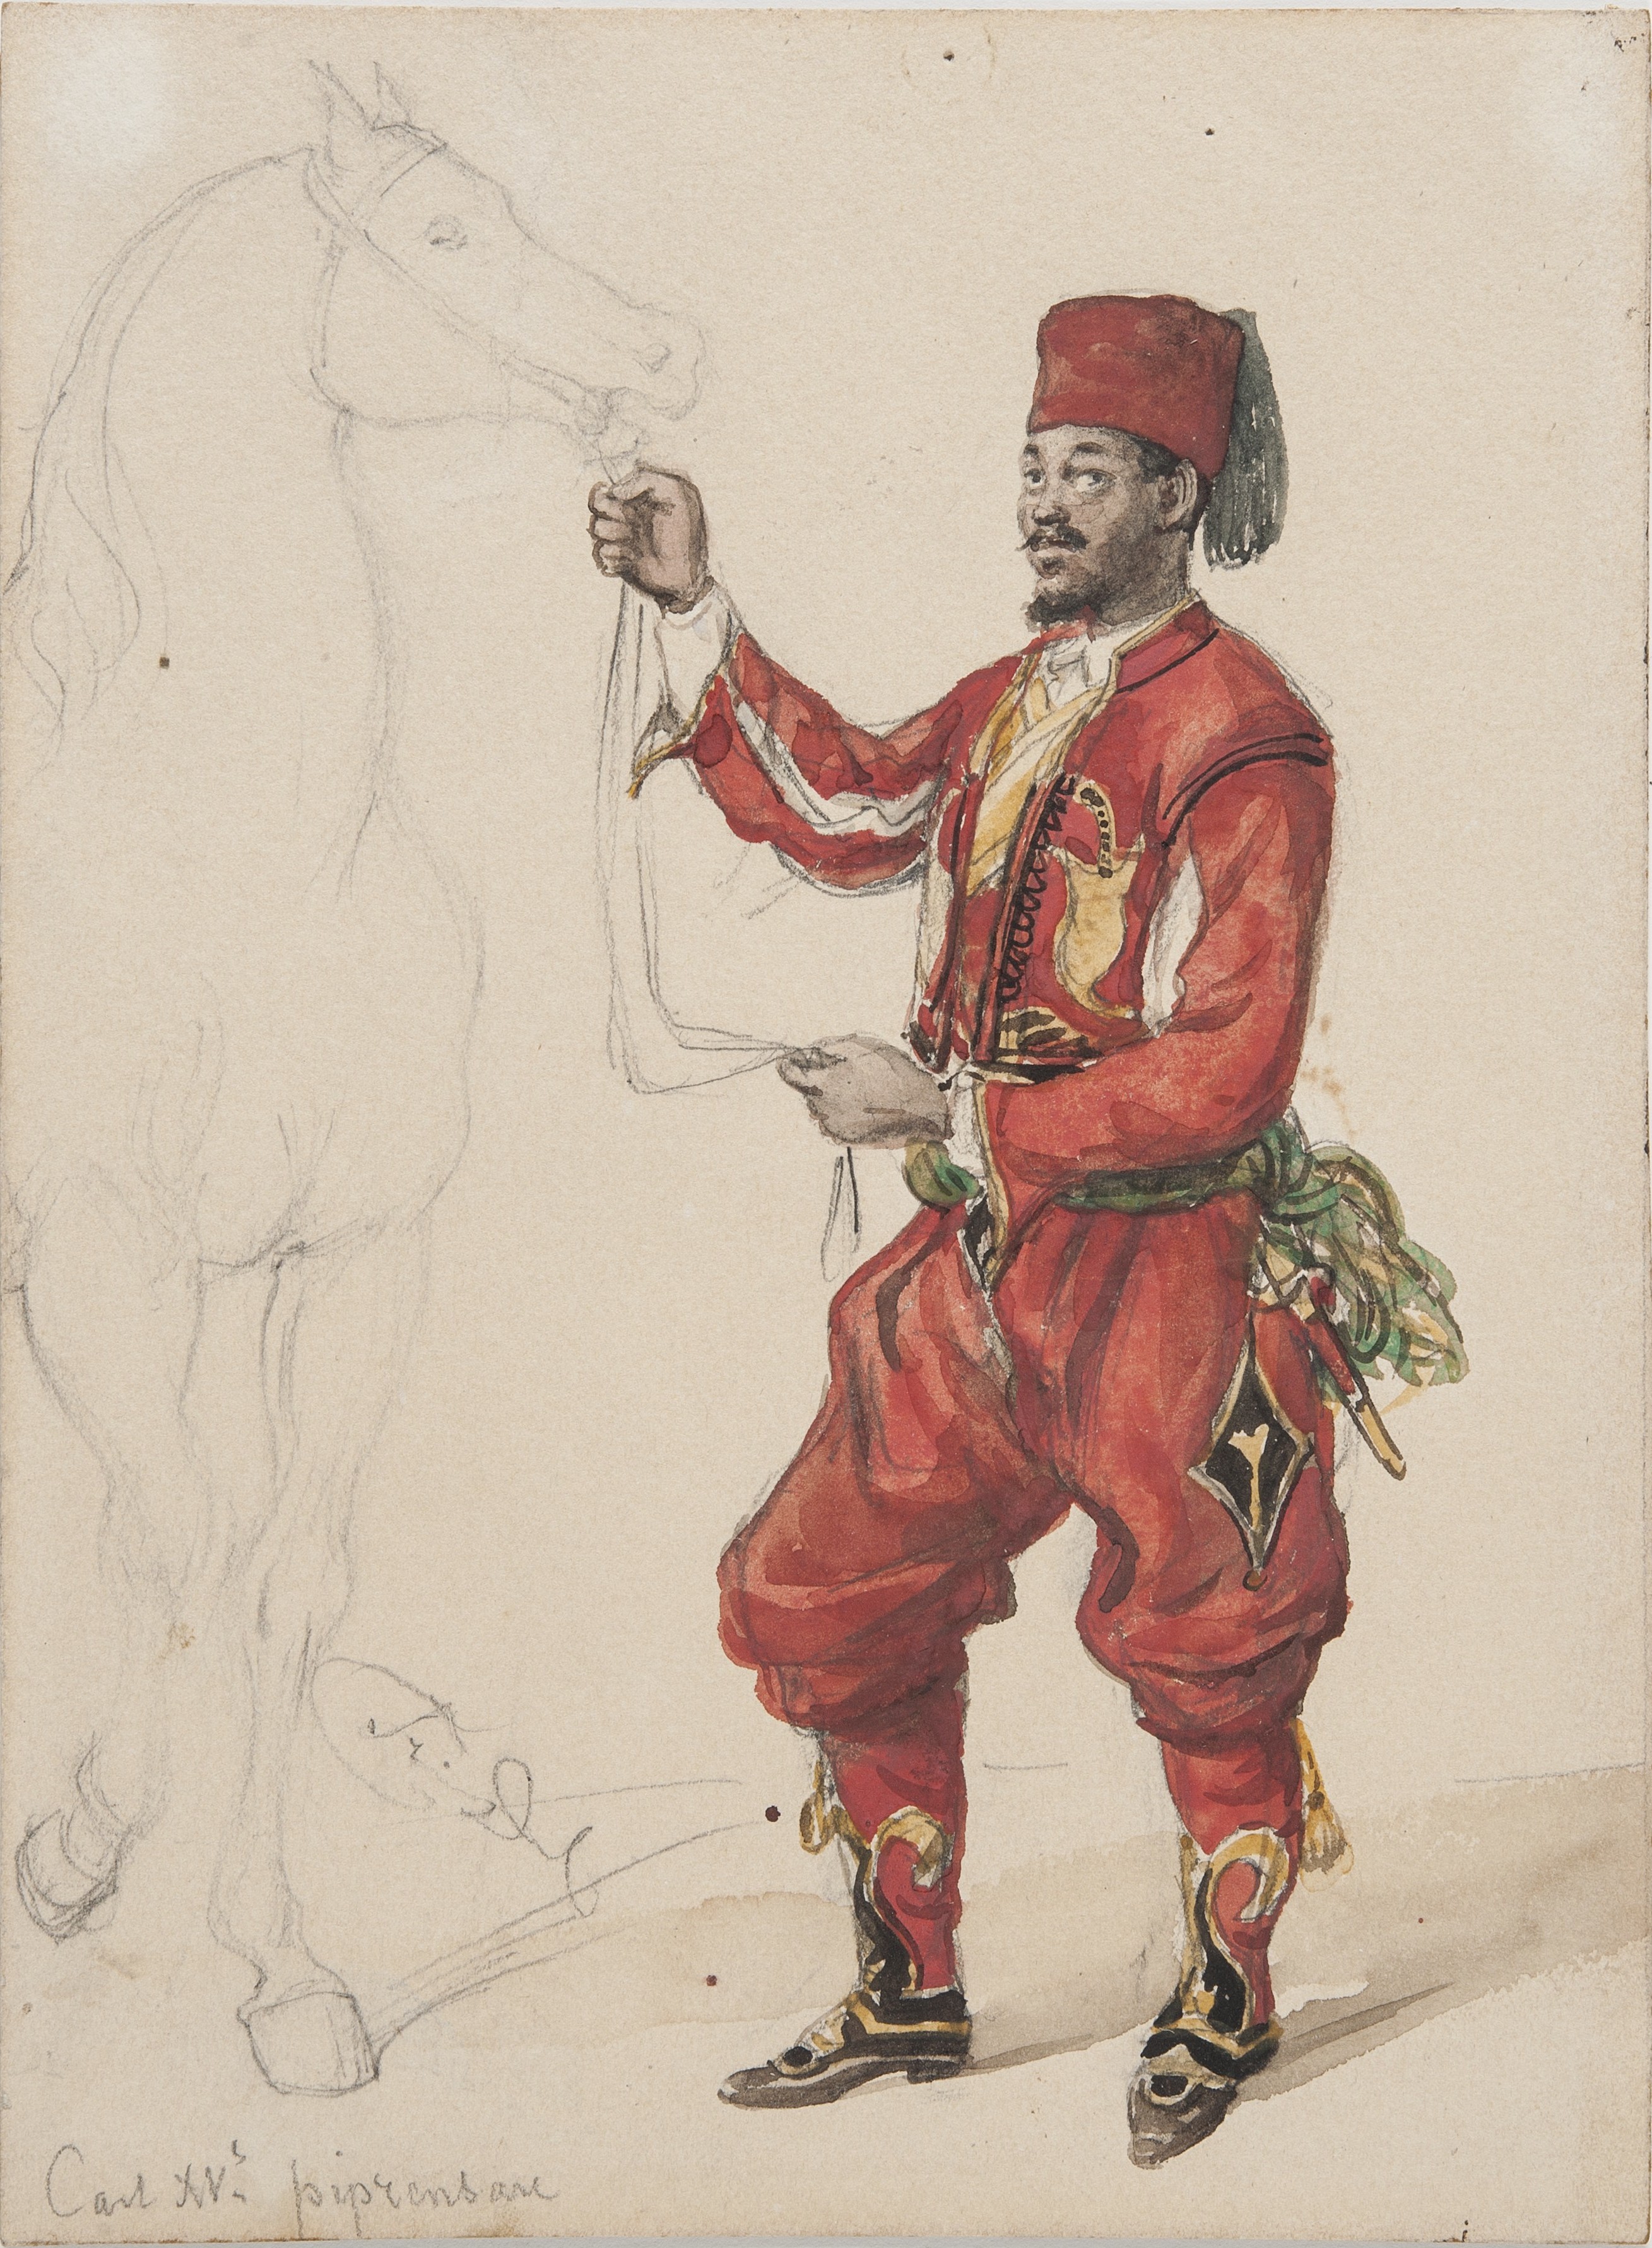 Carl XV:s piprensare